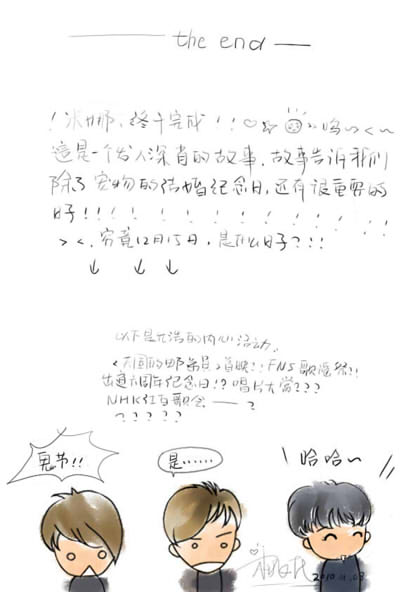 the end
！米娜、终于完成！！♡
這是一个发人深省的故事，故事告诉我们
除了宠物的结婚纪念日，还有很重要的
日子！！！！！！！！！！！！
＞＜．究竟12月15日，是什么日子？！！
↓ ↓ ↓
以下是允浩的内心活动．
《天国的邮递员》首映！！FNS歌谣祭！！
出道六周年纪念日！？唱片大赏？？？
NHK红白歌会——？
？？？？？
鬼节！！
是……
哈哈～
2010.11.03